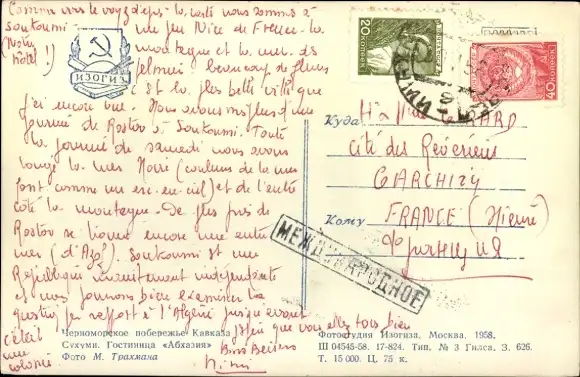 Comme vous le voyez d'après la carte nous sommes à
Soukoumi - un peu Nice de France - la
(Notre hôtel !)
montagne et la mer - des
palmiers beaucoup de fleurs
c'est la plus belle ville que
j'ai encore vue. Nous avons mis plus d'une
journée de Rostov à Soukoumi. Toute
la journée de samedi nous avons
longé la mer Noire (couleurs de la mer
font comme un arc-en-ciel) et de l'autre
côté la montagne - De plus près de
Rostov se trouve encore une autre
mer (d'Azof). Soukoumi est une
République indépendante
et nous pourrions bien examiner la
question par rapport à l'Algérie puisque avant
c'était une colonie
que vous allez tous bien
Bons Baisers
ИЗОГИЗ
20 КОПЕЕК
40 КОПЕЕК
Куда
Cité des Révériens
GARCHIZY
Кому
FRANCE (Nièvre)
Франция
МЕЖДУНАРОДНОЕ
Черноморское побережье Кавказа
Сухуми. Гостиница «Абхазия»
Фото М. Трахмана
Фотостудия Изогиза, Москва, 1958.
Ш 04545-58. 17-824. Тип. № 3 Гилса. З. 626.
Т. 15 000. Ц. 75 к.